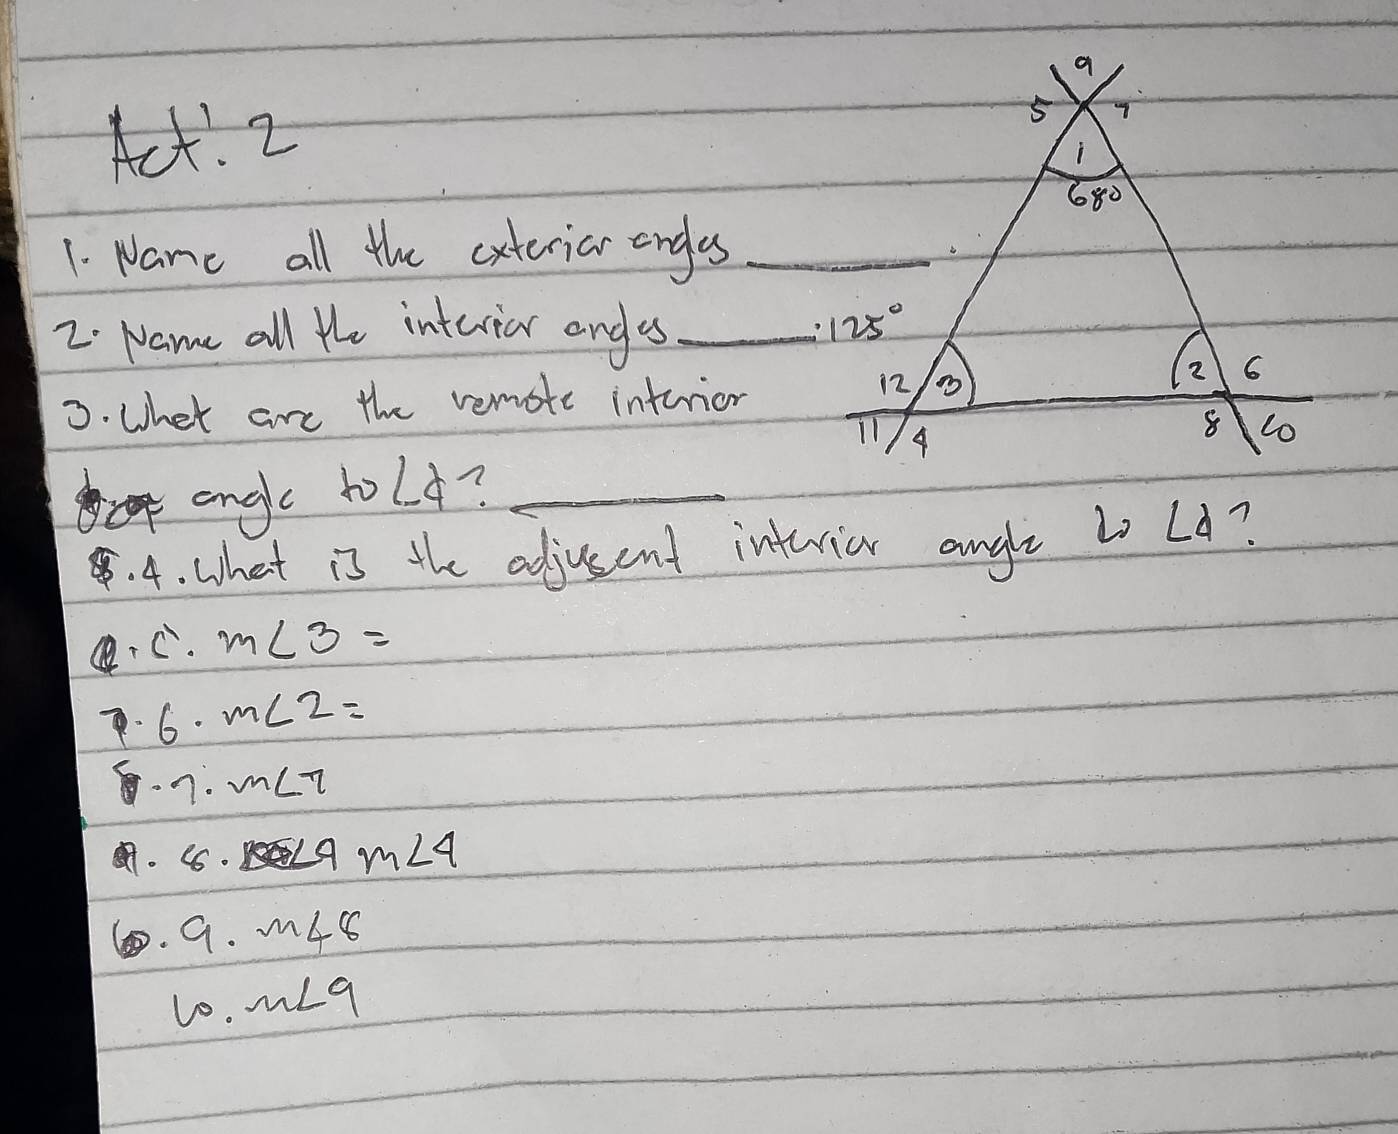 Act. 2
9
5 7
1
68°
1. Name all the exterior angles ________.
2. Name all the interior angles ________. 125°
12 3 2 6
11 4 8 10
3. What are the remote interior
angle to ∠4? ________
4. What is the adjusent interior angle to ∠4?
5. m∠3 =
6. m∠2 =
7. m∠7
8. m∠4
9. m∠8
10. m∠9